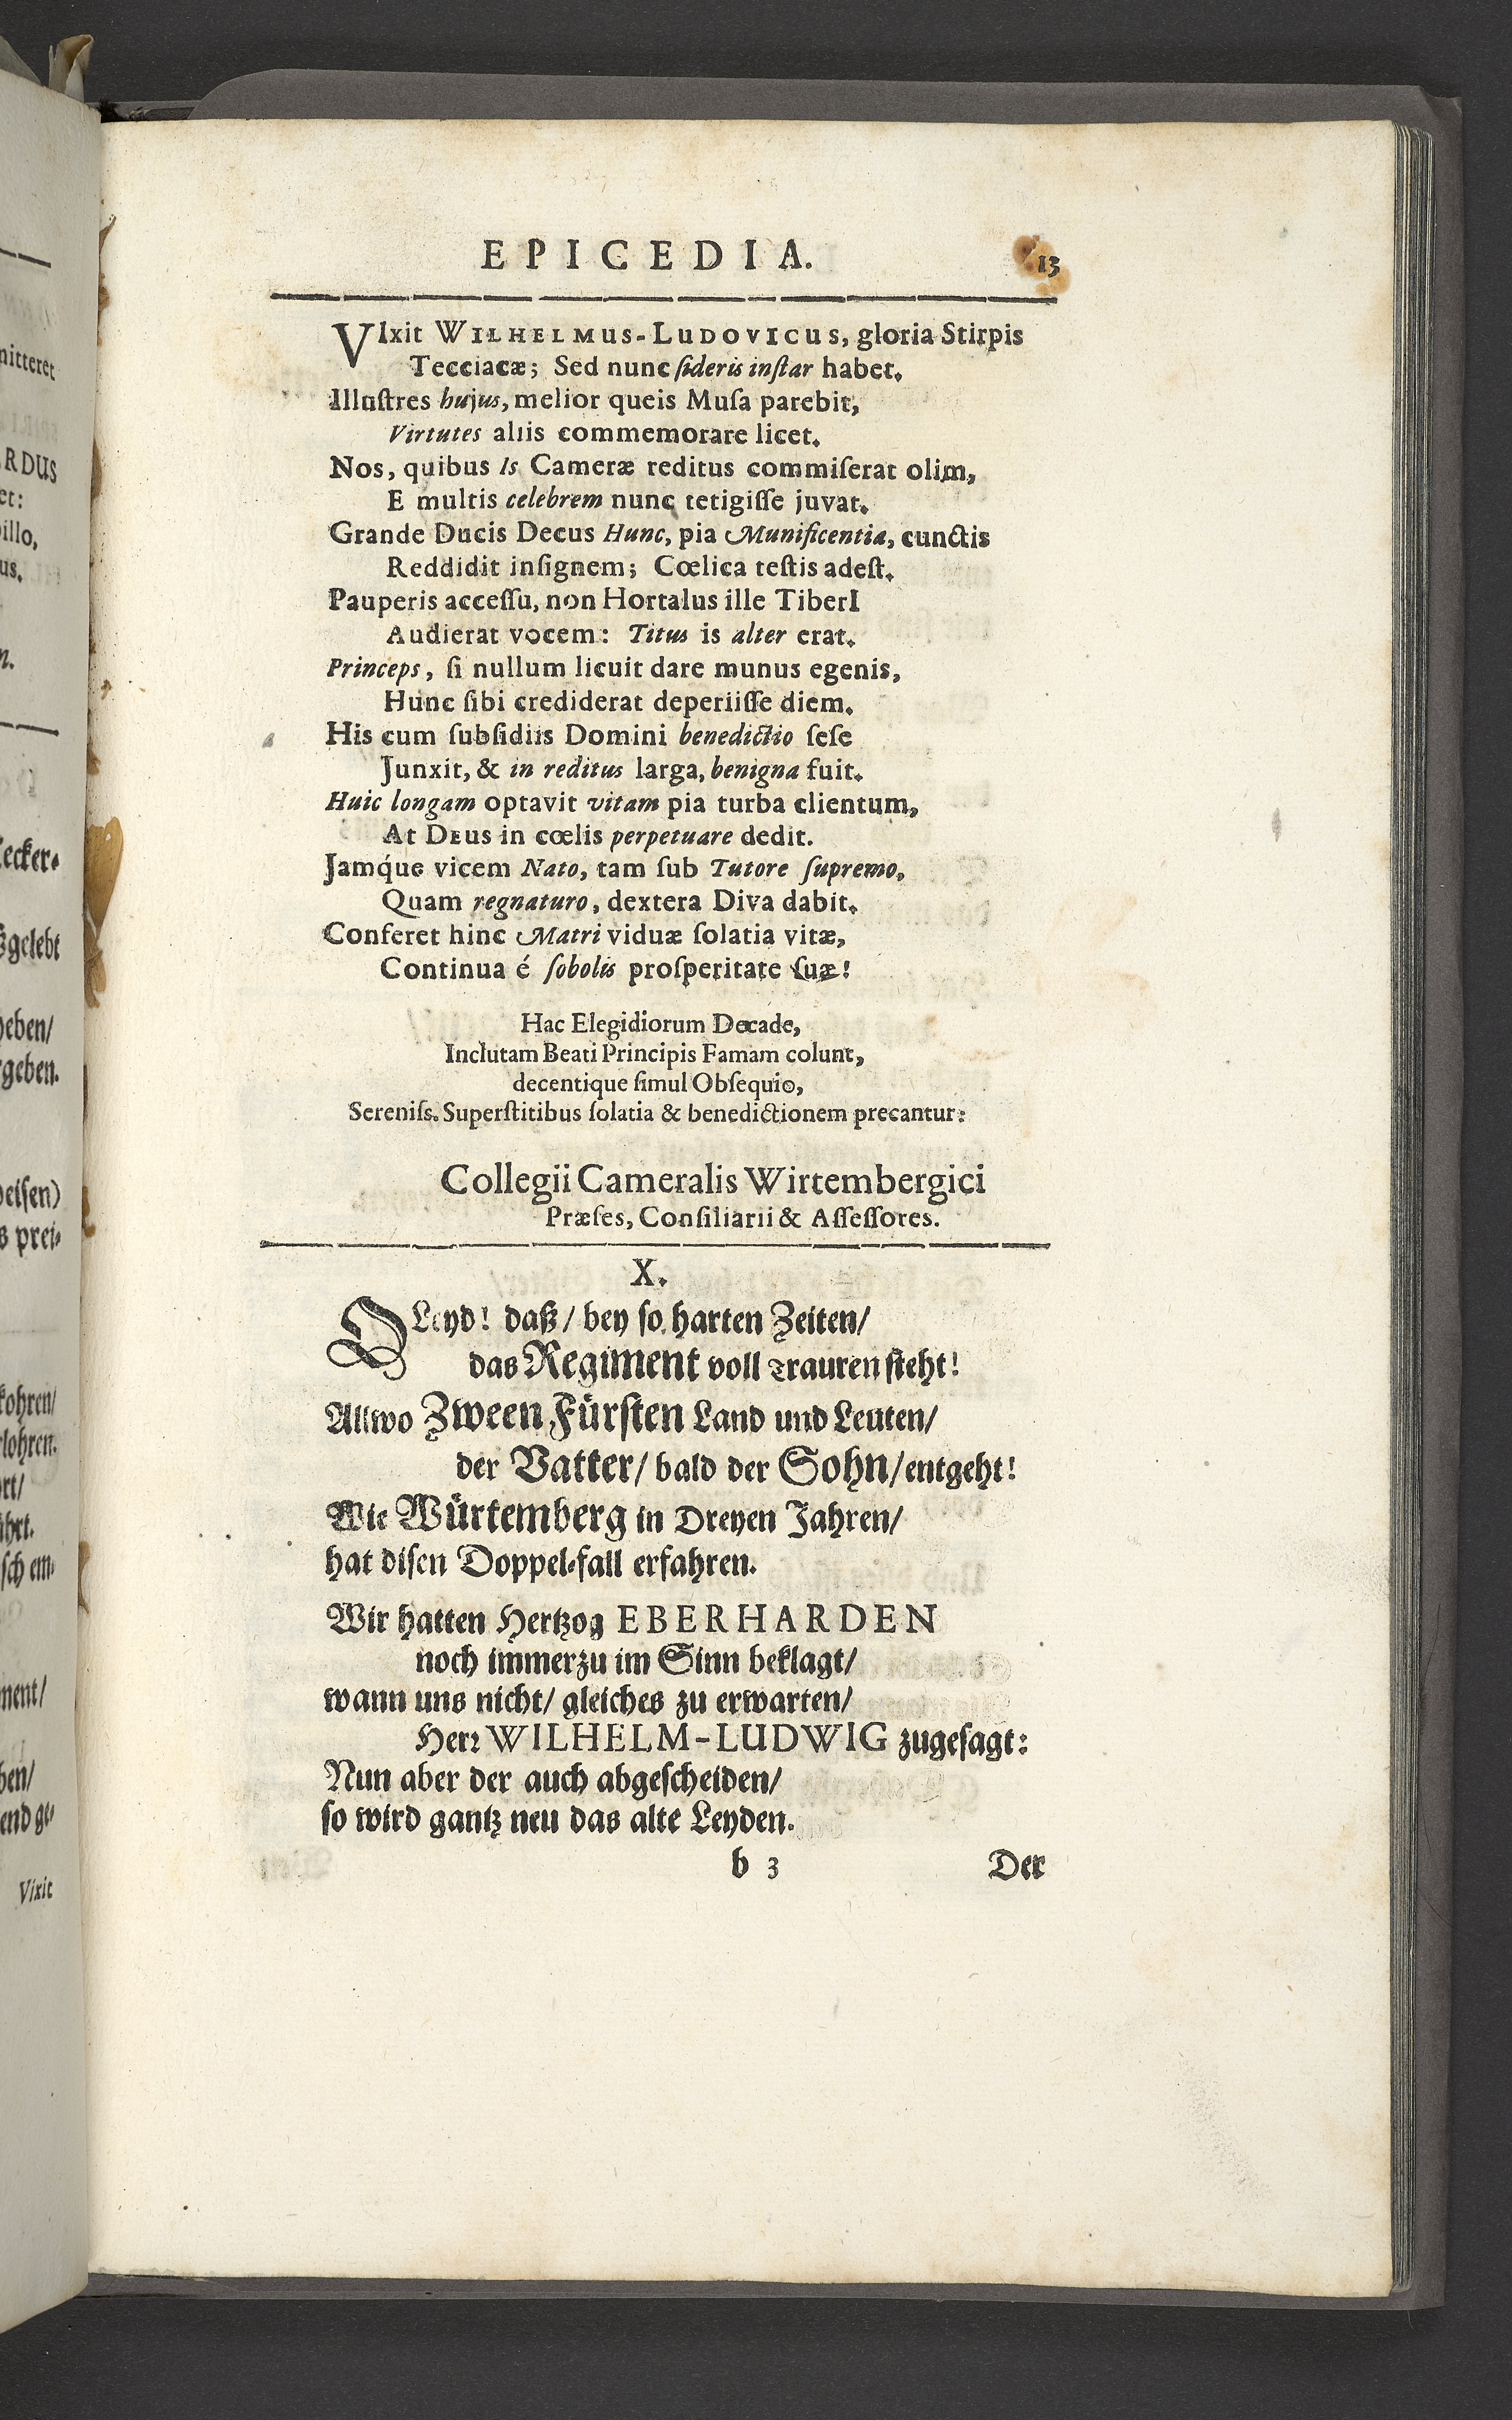 EPICEDIA. 13
VIxit WILHELMUS-LUDOVICUS, gloria Stirpis
Tecciacæ; Sed nunc ſideris inſtar habet.
Illuſtres hujus, melior queis Muſa parebit,
Virtutes aliis commemorare licet.
Nos, quibus Is Cameræ reditus commiſerat olim,
E multis celebrem nunc tetigiſſe juvat.
Grande Ducis Decus Hunc, pia Munificentia, cunctis
Reddidit inſignem; Cœlica teſtis adeſt.
Pauperis acceſſu, non Hortalus ille TiberI
Audierat vocem: Titus is alter erat.
Princeps, ſi nullum licuit dare munus egenis,
Hunc ſibi crediderat deperiiſſe diem.
His cum ſubſidiis Domini benedictio ſeſe
Junxit, & in reditus larga, benigna fuit.
Huic longam optavit vitam pia turba clientum,
At DEus in cœlis perpetuare dedit.
Jamq́ue vicem Nato, tam ſub Tutore ſupremo,
Quam regnaturo, dextera Diva dabit.
Conferet hinc Matri viduæ ſolatia vitæ,
Continua é ſobolis proſperitate ſuæ!
Hac Elegidiorum Decade,
Inclutam Beati Principis Famam colunt,
decentique ſimul Obſequio,
Sereniſs. Superſtitibus ſolatia & benedictionem precantur:
Collegii Cameralis Wirtembergici
Præſes, Conſiliarii & Aſſeſſores.
X.
O Leyd! daß / bey ſo harten Zeiten/
das Regiment voll Trauren ſteht!
Allwo Zween Fürſten Land und Leuten/
der Vatter/ bald der Sohn/ entgeht!
Wie Würtemberg in Dreyen Jahren/
hat diſen Doppel-fall erfahren.
Wir hatten Hertzog EBERHARDEN
noch immerzu im Sinn beklagt/
wann uns nicht/ gleiches zu erwarten/
Herr WILHELM-LUDWIG zugeſagt:
Nun aber der auch abgeſcheiden/
ſo wird gantz neu das alte Leyden.
b 3 Der
mitteret
RDUS
et:
illo,
us.
n.
ecker-
gelebt
geben.
eiſen)
prei-
kohren/
lohren.
ührt.
ſch em-
ment/
end ge-
Vixit